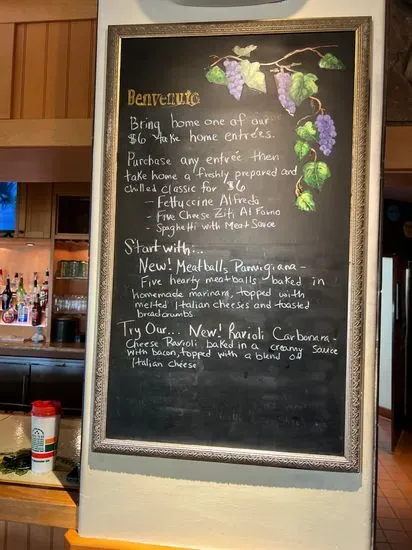 Benvenuto
Bring home one of our
$6 take home entrées.
Purchase any entrée then
take home a freshly prepared and
chilled classic for $6
- Fettuccine Alfredo
- Five Cheese Ziti Al Forno
- Spaghetti with Meat Sauce
Start with...
New! Meatballs Parmigiana -
Five hearty meatballs baked in
homemade marinara, topped with
melted Italian cheeses and toasted
breadcrumbs
Try Our... New! Ravioli Carbonara -
Cheese Ravioli baked in a creamy sauce
with bacon, topped with a blend of
Italian cheese